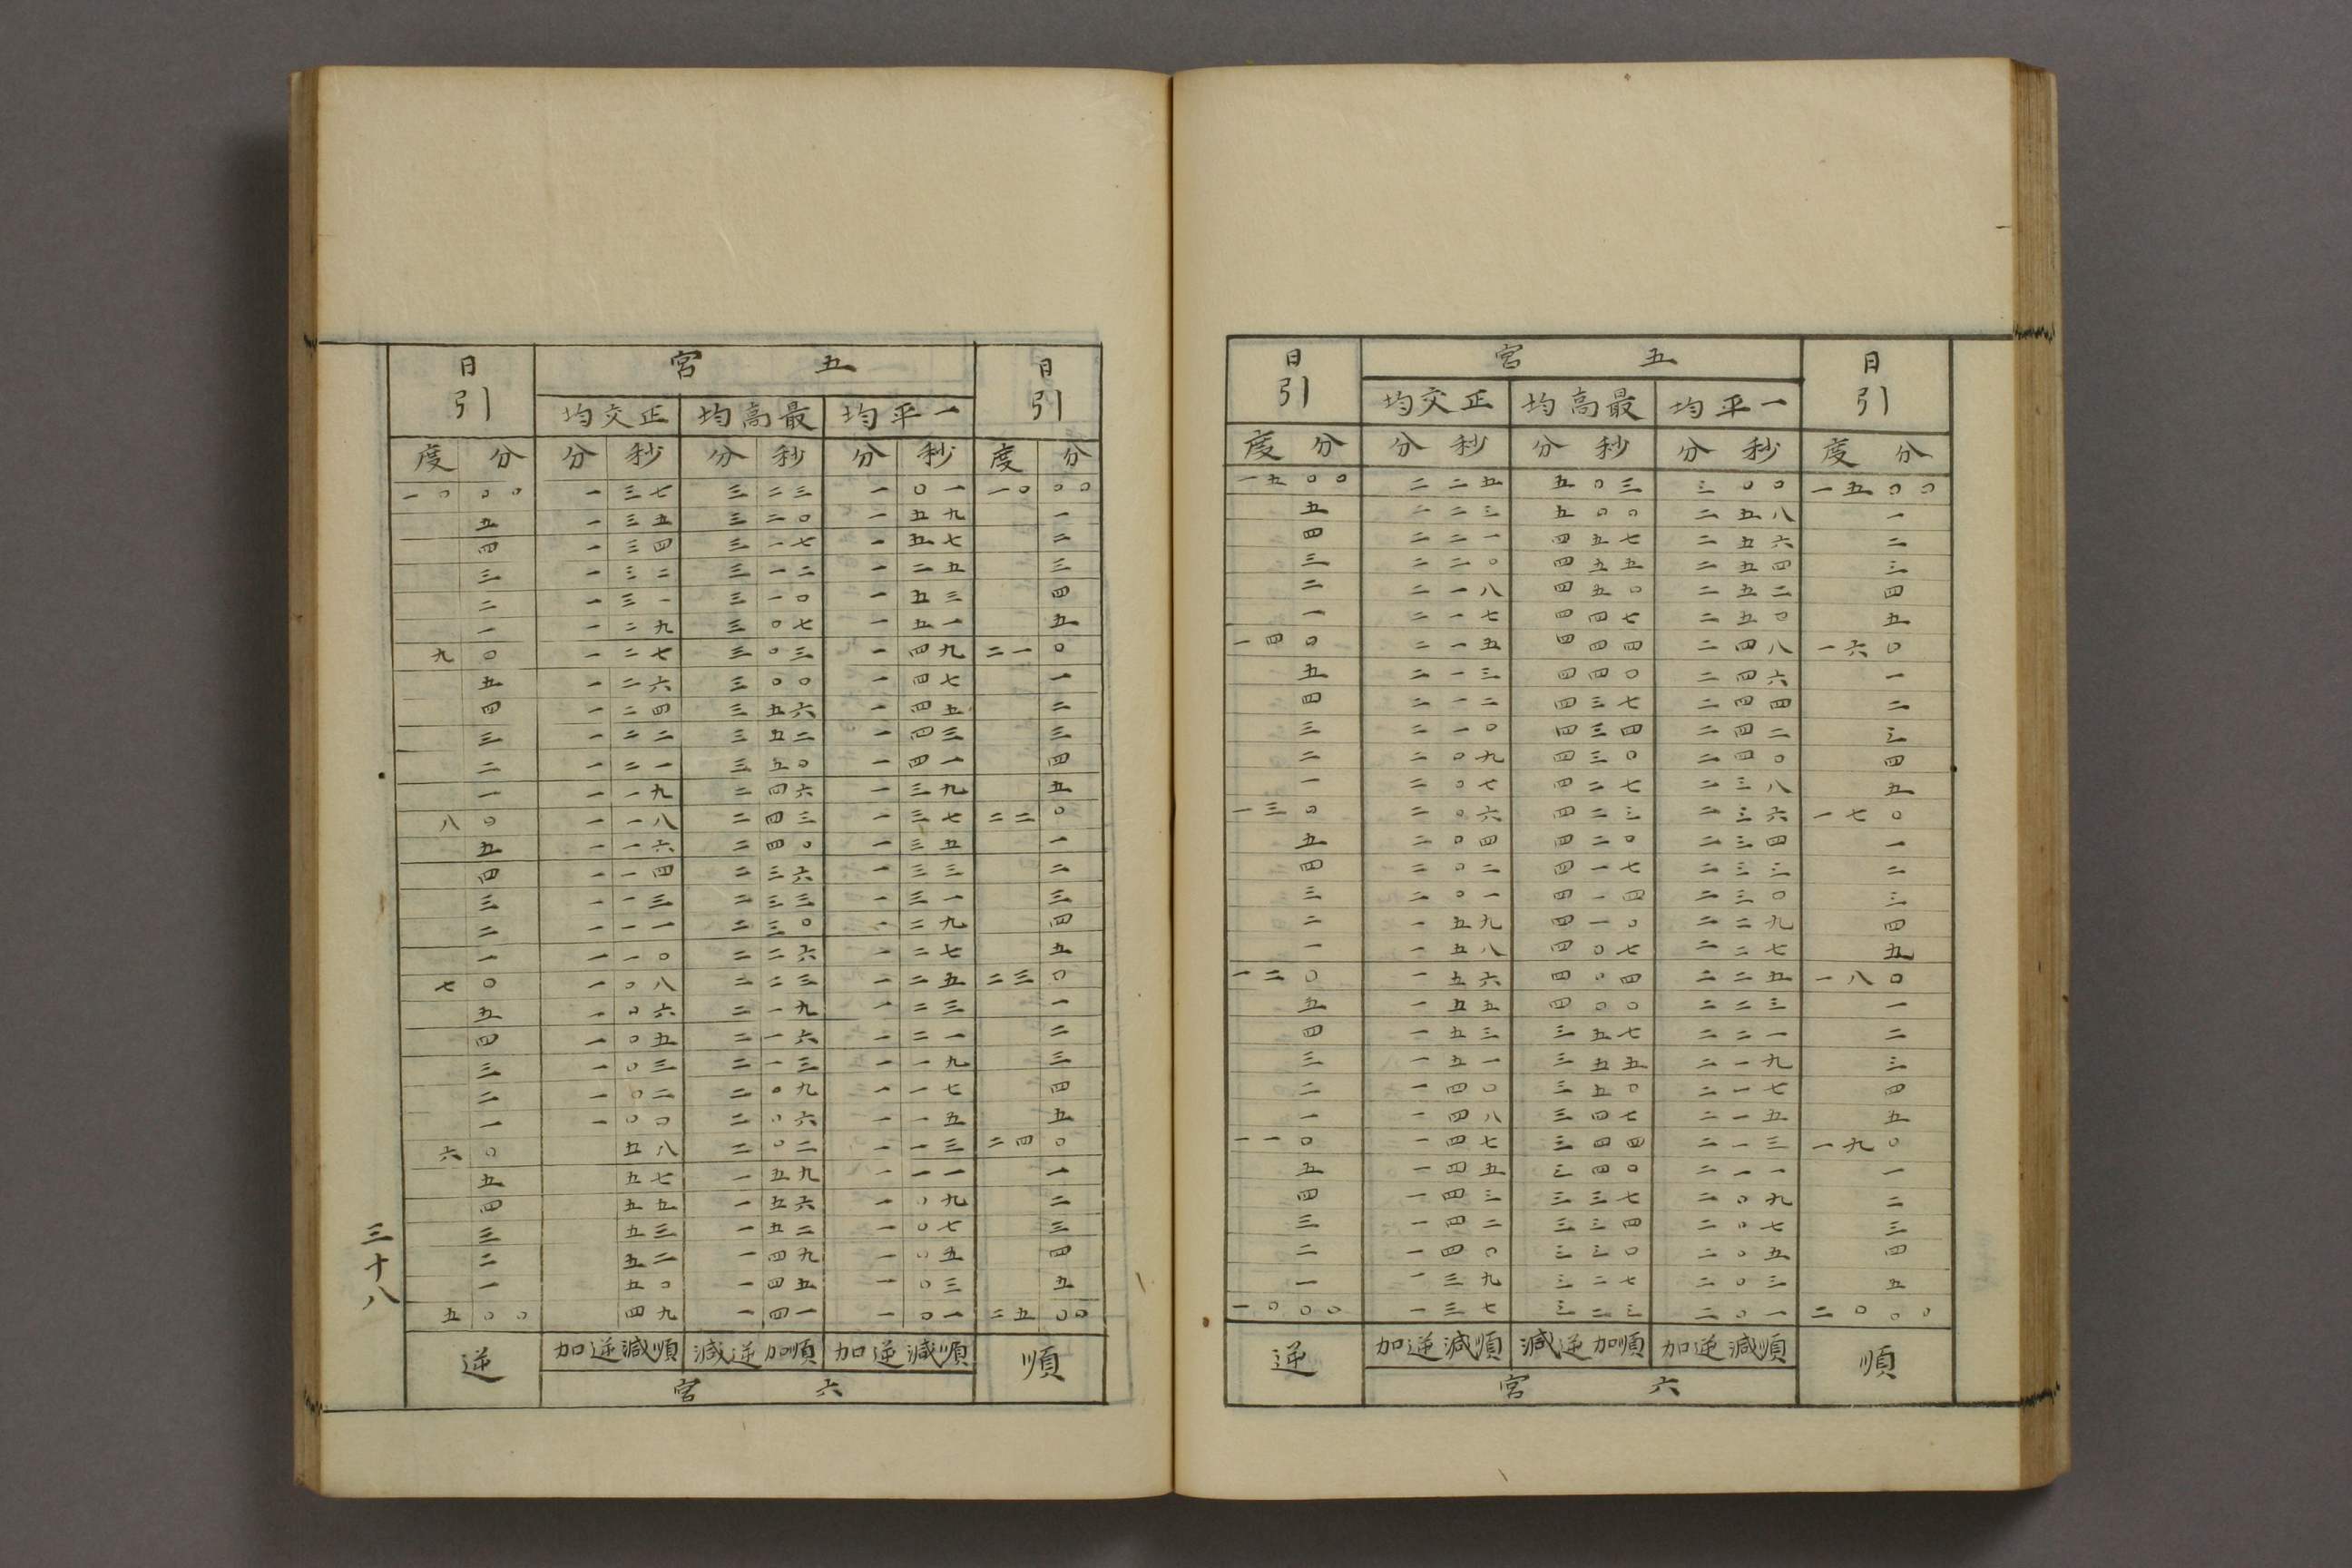 日引 五宮 日引
正交均 最高均 一平均
度分 分秒 分秒 分秒 度分
一五〇〇 二二五 五〇三 三〇〇 一五〇〇
五 二二三 五〇〇 二五八 一
四 二二一 四五七 二五六 二
三 二二〇 四五五 二五四 三
二 二一八 四五〇 二五二 四
一 二一七 四四七 二五〇 五
一四〇 二一五 四四四 二四八 一六〇
五 二一三 四四〇 二四六 一
四 二一二 四三七 二四四 二
三 二一〇 四三四 二四二 三
二 二〇九 四三〇 二四〇 四
一 二〇七 四二七 二三八 五
一三〇 二〇六 四二三 二三六 一七〇
五 二〇四 四二〇 二三四 一
四 二〇二 四一七 二三三 二
三 二〇一 四一四 二三〇 三
二 一五九 四一〇 二二九 四
一 一五八 四〇七 二二七 五
一二〇 一五六 四〇四 二二五 一八〇
五 一五五 四〇〇 二二三 一
四 一五三 三五七 二二一 二
三 一五一 三五五 二一九 三
二 一四〇 三五〇 二一七 四
一 一四八 三四七 二一五 五
一一〇 一四七 三四四 二一三 一九〇
五 一四五 三四〇 二一一 一
四 一四三 三三七 二〇九 二
三 一四二 三三四 二〇七 三
二 一四〇 三三〇 二〇五 四
一 一三九 三二七 二〇三 五
一〇〇〇 一三七 三二三 二〇一 二〇〇〇
逆 順減逆加 順加逆減 順減逆加 順
六宮
日引 五宮 日引
正交均 最高均 一平均
度分 分秒 分秒 分秒 度分
一〇〇〇 一三七 三二三 一〇一 一〇〇〇
五 一三五 三二〇 一五九 一
四 一三四 三一七 一五七 二
三 一三二 三一二 一二五 三
二 一三一 三一〇 一五三 四
一 一二九 三〇七 一五一 五
九〇 一二七 三〇三 一四九 二一〇
五 一二六 三〇〇 一四七 一
四 一二四 三五六 一四五 二
三 一二二 三五二 一四三 三
二 一二一 三五〇 一四一 四
一 一一九 二四六 一三九 五
八〇 一一八 二四三 一三七 二二〇
五 一一六 二四〇 一三五 一
四 一一四 二三六 一三三 二
三 一一三 二三三 一三一 三
二 一一一 二三〇 一二九 四
一 一一〇 二二六 一二七 五
七〇 一〇八 二二三 一二五 二三〇
五 一〇六 二一九 一二三 一
四 一〇五 二一六 一二一 二
三 一〇三 二一三 一一九 三
二 一〇二 二〇九 一一七 四
一 一〇〇 二〇六 一一五 五
六〇 五八 二〇二 一一三 二四〇
五 五七 一五九 一一一 一
四 五五 一五六 一〇九 二
三 五三 一五二 一〇七 三
二 五二 一四九 一〇五 四
一 五〇 一四五 一〇三 五
五〇〇 四九 一四一 一〇一 二五〇〇
逆 順減逆加 順加逆減 順減逆加 順
六宮
三十八